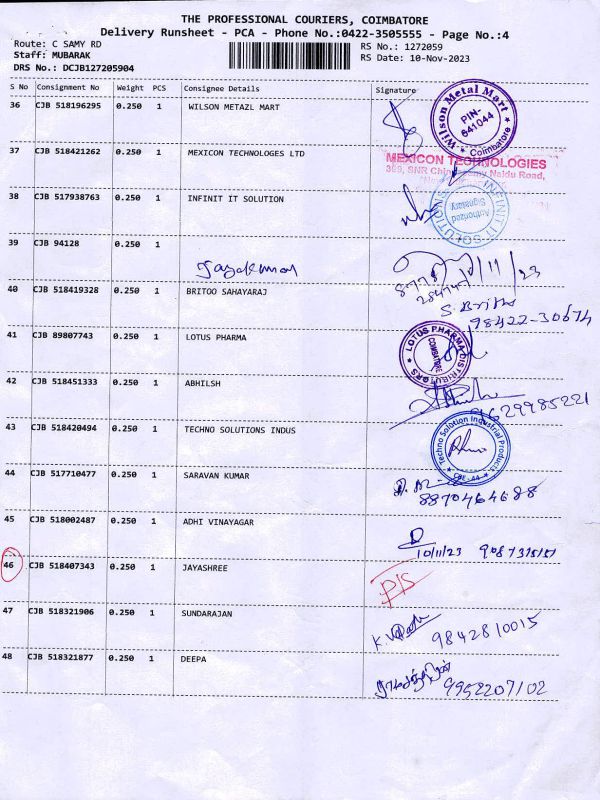 THE PROFESSIONAL COURIERS, COIMBATORE
Delivery Runsheet - PCA - Phone No.:0422-3505555 - Page No.:4
Route: C SAMY RD
RS No.: 1272059
Staff: MUBARAK
RS Date: 10-Nov-2023
DRS No.: DCJB127205904
S No Consignment No Weight PCS Consignee Details Signature
36 CJB 518196295 0.250 1 WILSON METAZL MART
Wilson Metal Mart
PIN-
641044
Coimbatore
37 CJB 518421262 0.250 1 MEXICON TECHNOLOGES LTD
MEXICON TECHNOLOGIES
Naidu Road,
38 CJB 517938763 0.250 1 INFINIT IT SOLUTION
INFINIT IT SOLUTIONS
Authorized
Signatory
39 CJB 94128 0.250 1
Jayakumar
11/23
40 CJB 518419328 0.250 1 BRITOO SAHAYARAJ
S. Britto
98422-30674
41 CJB 89807743 0.250 1 LOTUS PHARMA
LOTUS PHARMA DISTRIBUTORS
COIMBATORE
42 CJB 518451333 0.250 1 ABHILSH
9629985221
43 CJB 518420494 0.250 1 TECHNO SOLUTIONS INDUS
Techno Solution Industrial Products
CBE-44
44 CJB 517710477 0.250 1 SARAVAN KUMAR
8870464688
45 CJB 518002487 0.250 1 ADHI VINAYAGAR
10/11/23
46 CJB 518407343 0.250 1 JAYASHREE
P/S
47 CJB 518321906 0.250 1 SUNDARAJAN
9842810015
48 CJB 518321877 0.250 1 DEEPA
9952207102